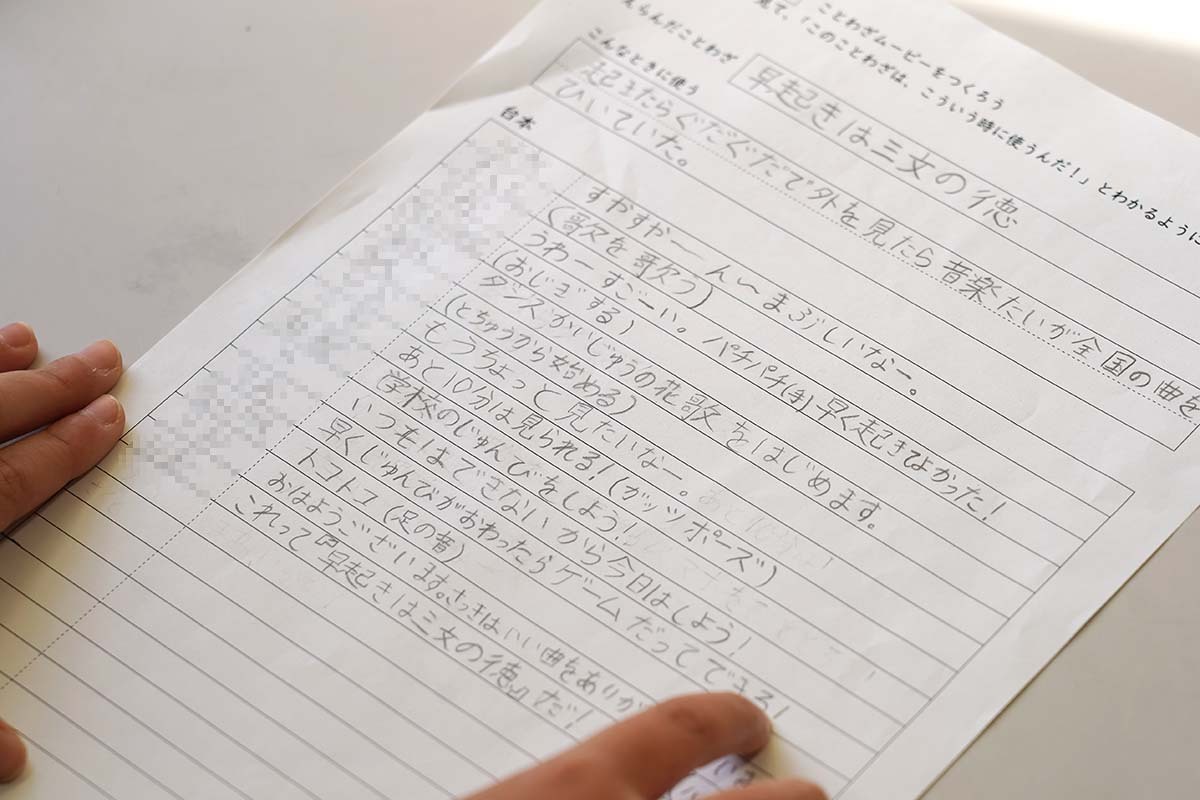 ことわざムービーをつくろう
見て、「このことわざは、こういう時に使うんだ！」とわかるように
えらんだことわざ
早起きは三文の徳
こんなときに使う
起きたらぐだぐだで外を見たら音楽たいが全国の曲を
ひいていた。
台本
すやすやーんーまぶしいなー。
(歌を歌う)
うわーすごーい。パチパチ(手)早く起きてよかった！
(おじぎする)
ダンスかいじゅうの花歌をはじめます。
(とちゅうから始める)
もうちょっと見たいなー。
あと10分は見られる！(ガッツポーズ)
学校のじゅんびをしよう！
いつもはできないから今日はしよう！
早くじゅんびがおわったらゲームだってできる！
トコトコ(足の音)
おはようございます。さっきはいい曲をありが
これって『早起きは三文の徳』だ！